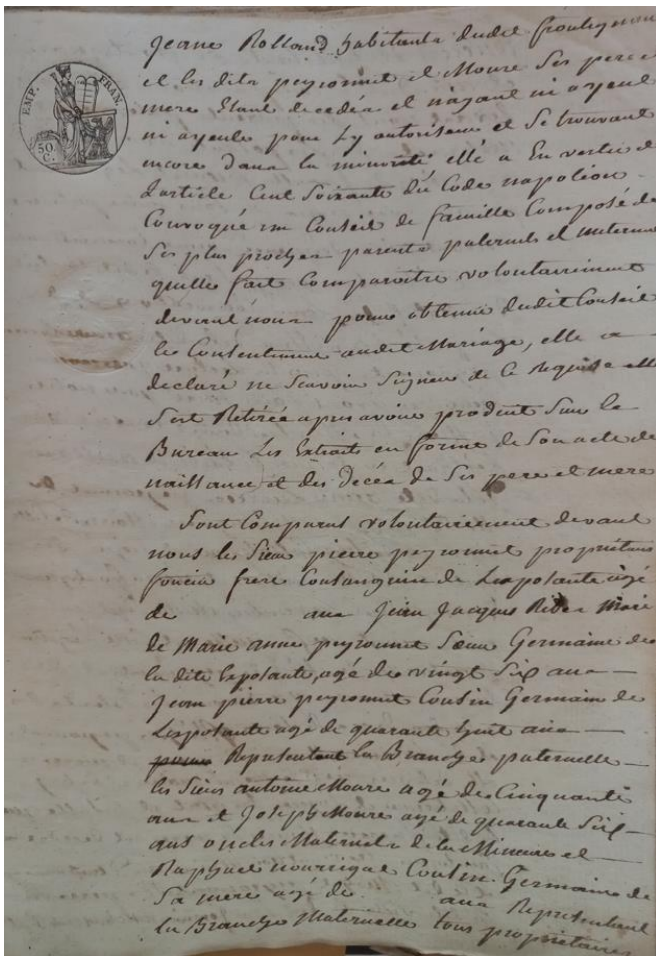 EMP. FRAN.
50 C.
jeanne Rolland habitants dudit
et les dits peyronnet et Moure Ses pere et
mere Etant decedés et n'ayant ni ayeul
ni ayeule pour Ly autoriser et Se trouvant
encore Dans la minorité elle a En vertu de
Larticle Cent Soixante du Code napoléon
Convoqué un Conseil de famille Composé de
Ses plus proches parents paternels et maternels
quelle fait Comparaitre volontairement
devant nous pour obtenir dudit Conseil
le Consentement audit Mariage, elle a
declaré ne Scavoir Signer de Ce Requise elle
Sest Retirée apres avoir produit Sur le
Bureau Les Extraits en forme de Son acte de
naissance et des Décès de Ses pere et mere
Sont Comparus volontairement devant
nous les Sieurs pierre peyronnet proprietaire
foncier frere Consanguin de Lexposante agé
de ans Jean Jacques Mari
de Marie anne peyronnet Sœur Germaine de
la dite Exposante, agé de vingt Six ans
Jean pierre peyronnet Cousin Germain de
Lexposante agé de quarante huit ans
Representent la Branche paternelle
les Sieurs antoine Moure agé de Cinquante
ans et Joseph Moure agé de quarante Six
ans oncles Maternels de la Mineure et
Raphael Cousin Germain de
Sa mere agé de ans Representent
la Branche Maternelle tous proprietaires